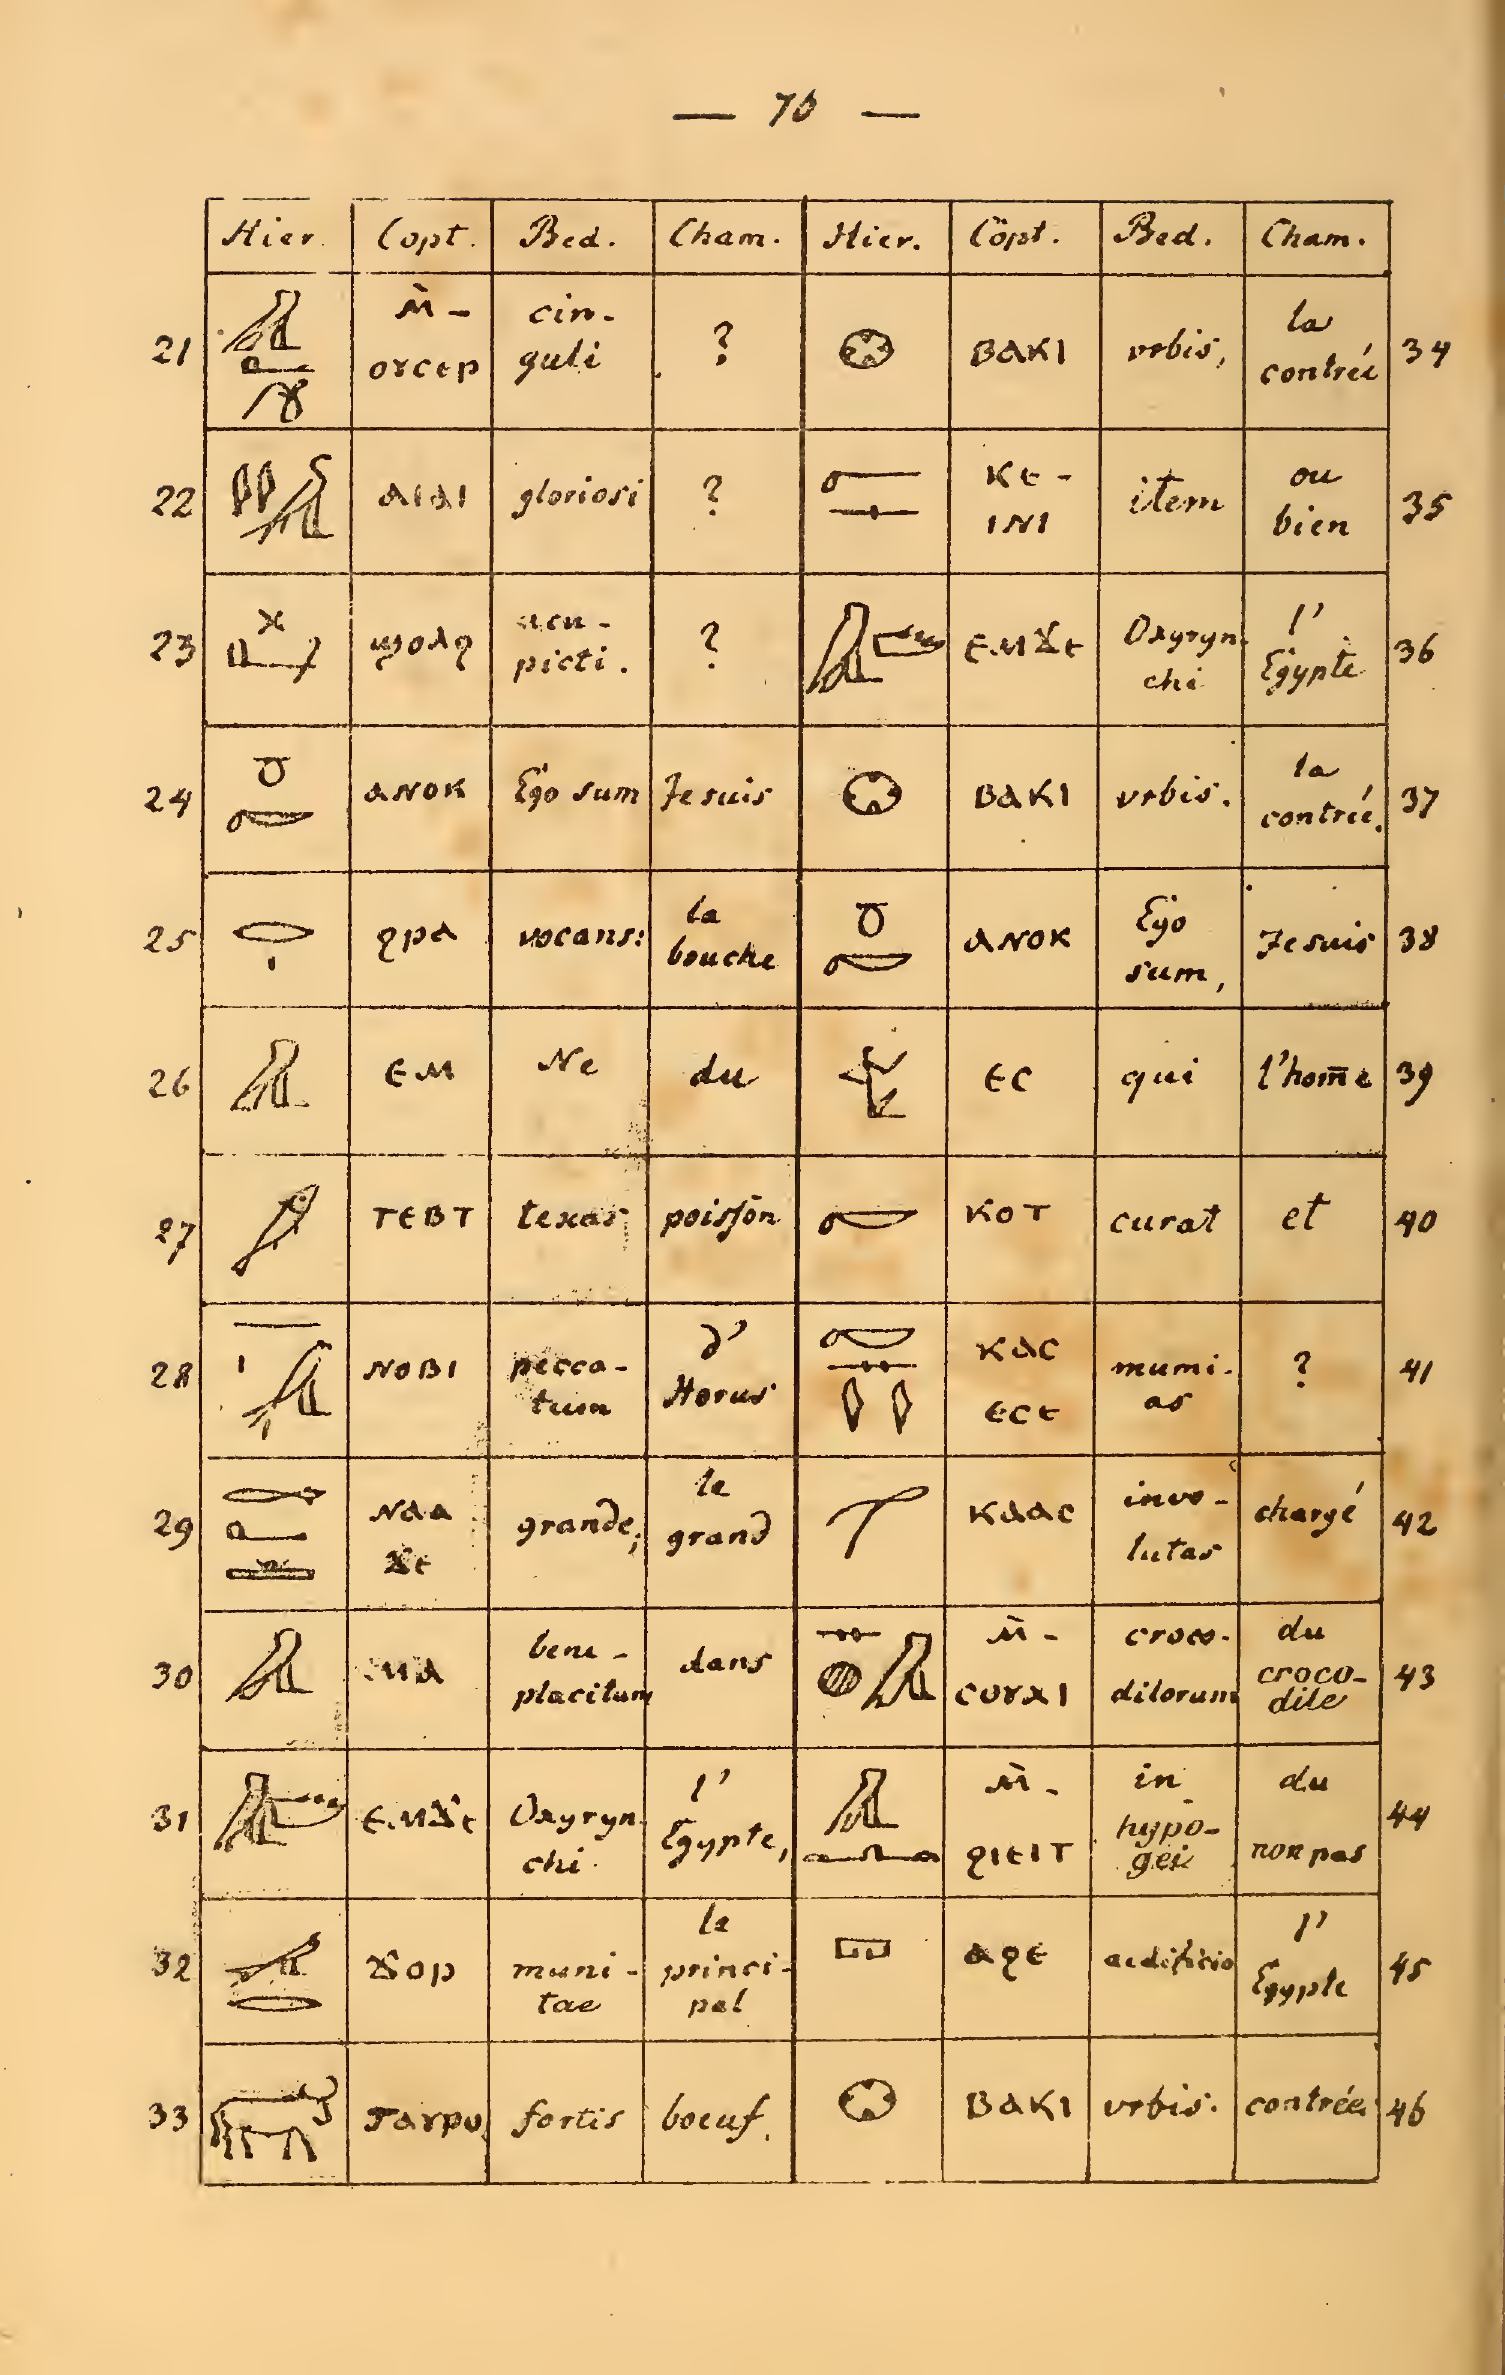 — 76 —
Hier. Copt. Bed. Cham. Hier. Copt. Bed. Cham.
21 ⲙ̀- ⲟⲩⲥⲉⲣ cin- guli ? ⲃⲁⲕⲓ urbis, la contrée 34
22 ⲁⲓⲁⲓ gloriosi ? ⲕⲉ- ⲓⲛⲓ item ou bien 35
23 ϣⲟⲗϩ acu- picti. ? ⲉⲙϫⲉ Oxyryn- chi l' Egypte 36
24 ⲁⲛⲟⲕ Ego sum Je suis ⲃⲁⲕⲓ urbis. la contrée. 37
25 ϩⲣⲁ vocans: la bouche ⲁⲛⲟⲕ Ego sum, Je suis 38
26 ⲉⲙ Ne du ⲉⲥ qui l'hom̄e 39
27 ⲧⲉⲃⲧ texas poisson ⲕⲟⲧ curat et 40
28 ⲛⲟⲃⲓ pecca- tum d' Horus ⲕⲁⲥ ⲉⲥⲉ mumi- as ? 41
29 ⲛⲁⲁ ϫⲉ grande; le grand ⲕⲁⲁⲥ invo- lutas chargé 42
30 ⲙⲁ bene- placitum dans ⲙ̀- ⲥⲟⲩⲭⲓ croco- dilorum du croco- dile 43
31 ⲉⲙϫⲉ Oxyryn- chi l' Egypte, ⲙ̀- ϩⲓⲉⲓⲧ in hypo- gei du non pas 44
32 ϫⲟⲣ muni- tae le princi- pal ⲁϩⲉ aedificio l' Egypte 45
33 ⲧⲁⲩⲣⲟ fortis boeuf. ⲃⲁⲕⲓ urbis. contrée. 46